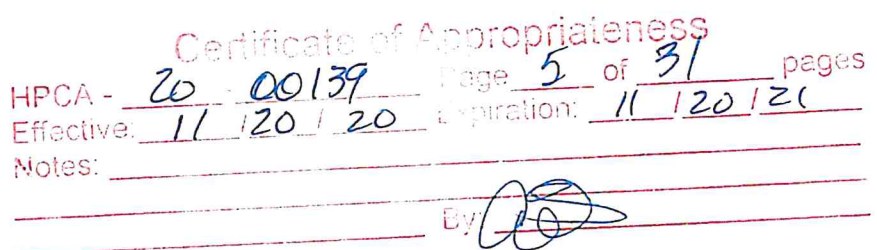 Certificate of Appropriateness
HPCA - 20 - 00139 Page 5 of 31 pages
Effective: 11 / 20 / 20 Expiration: 11 / 20 / 21
Notes:
By: